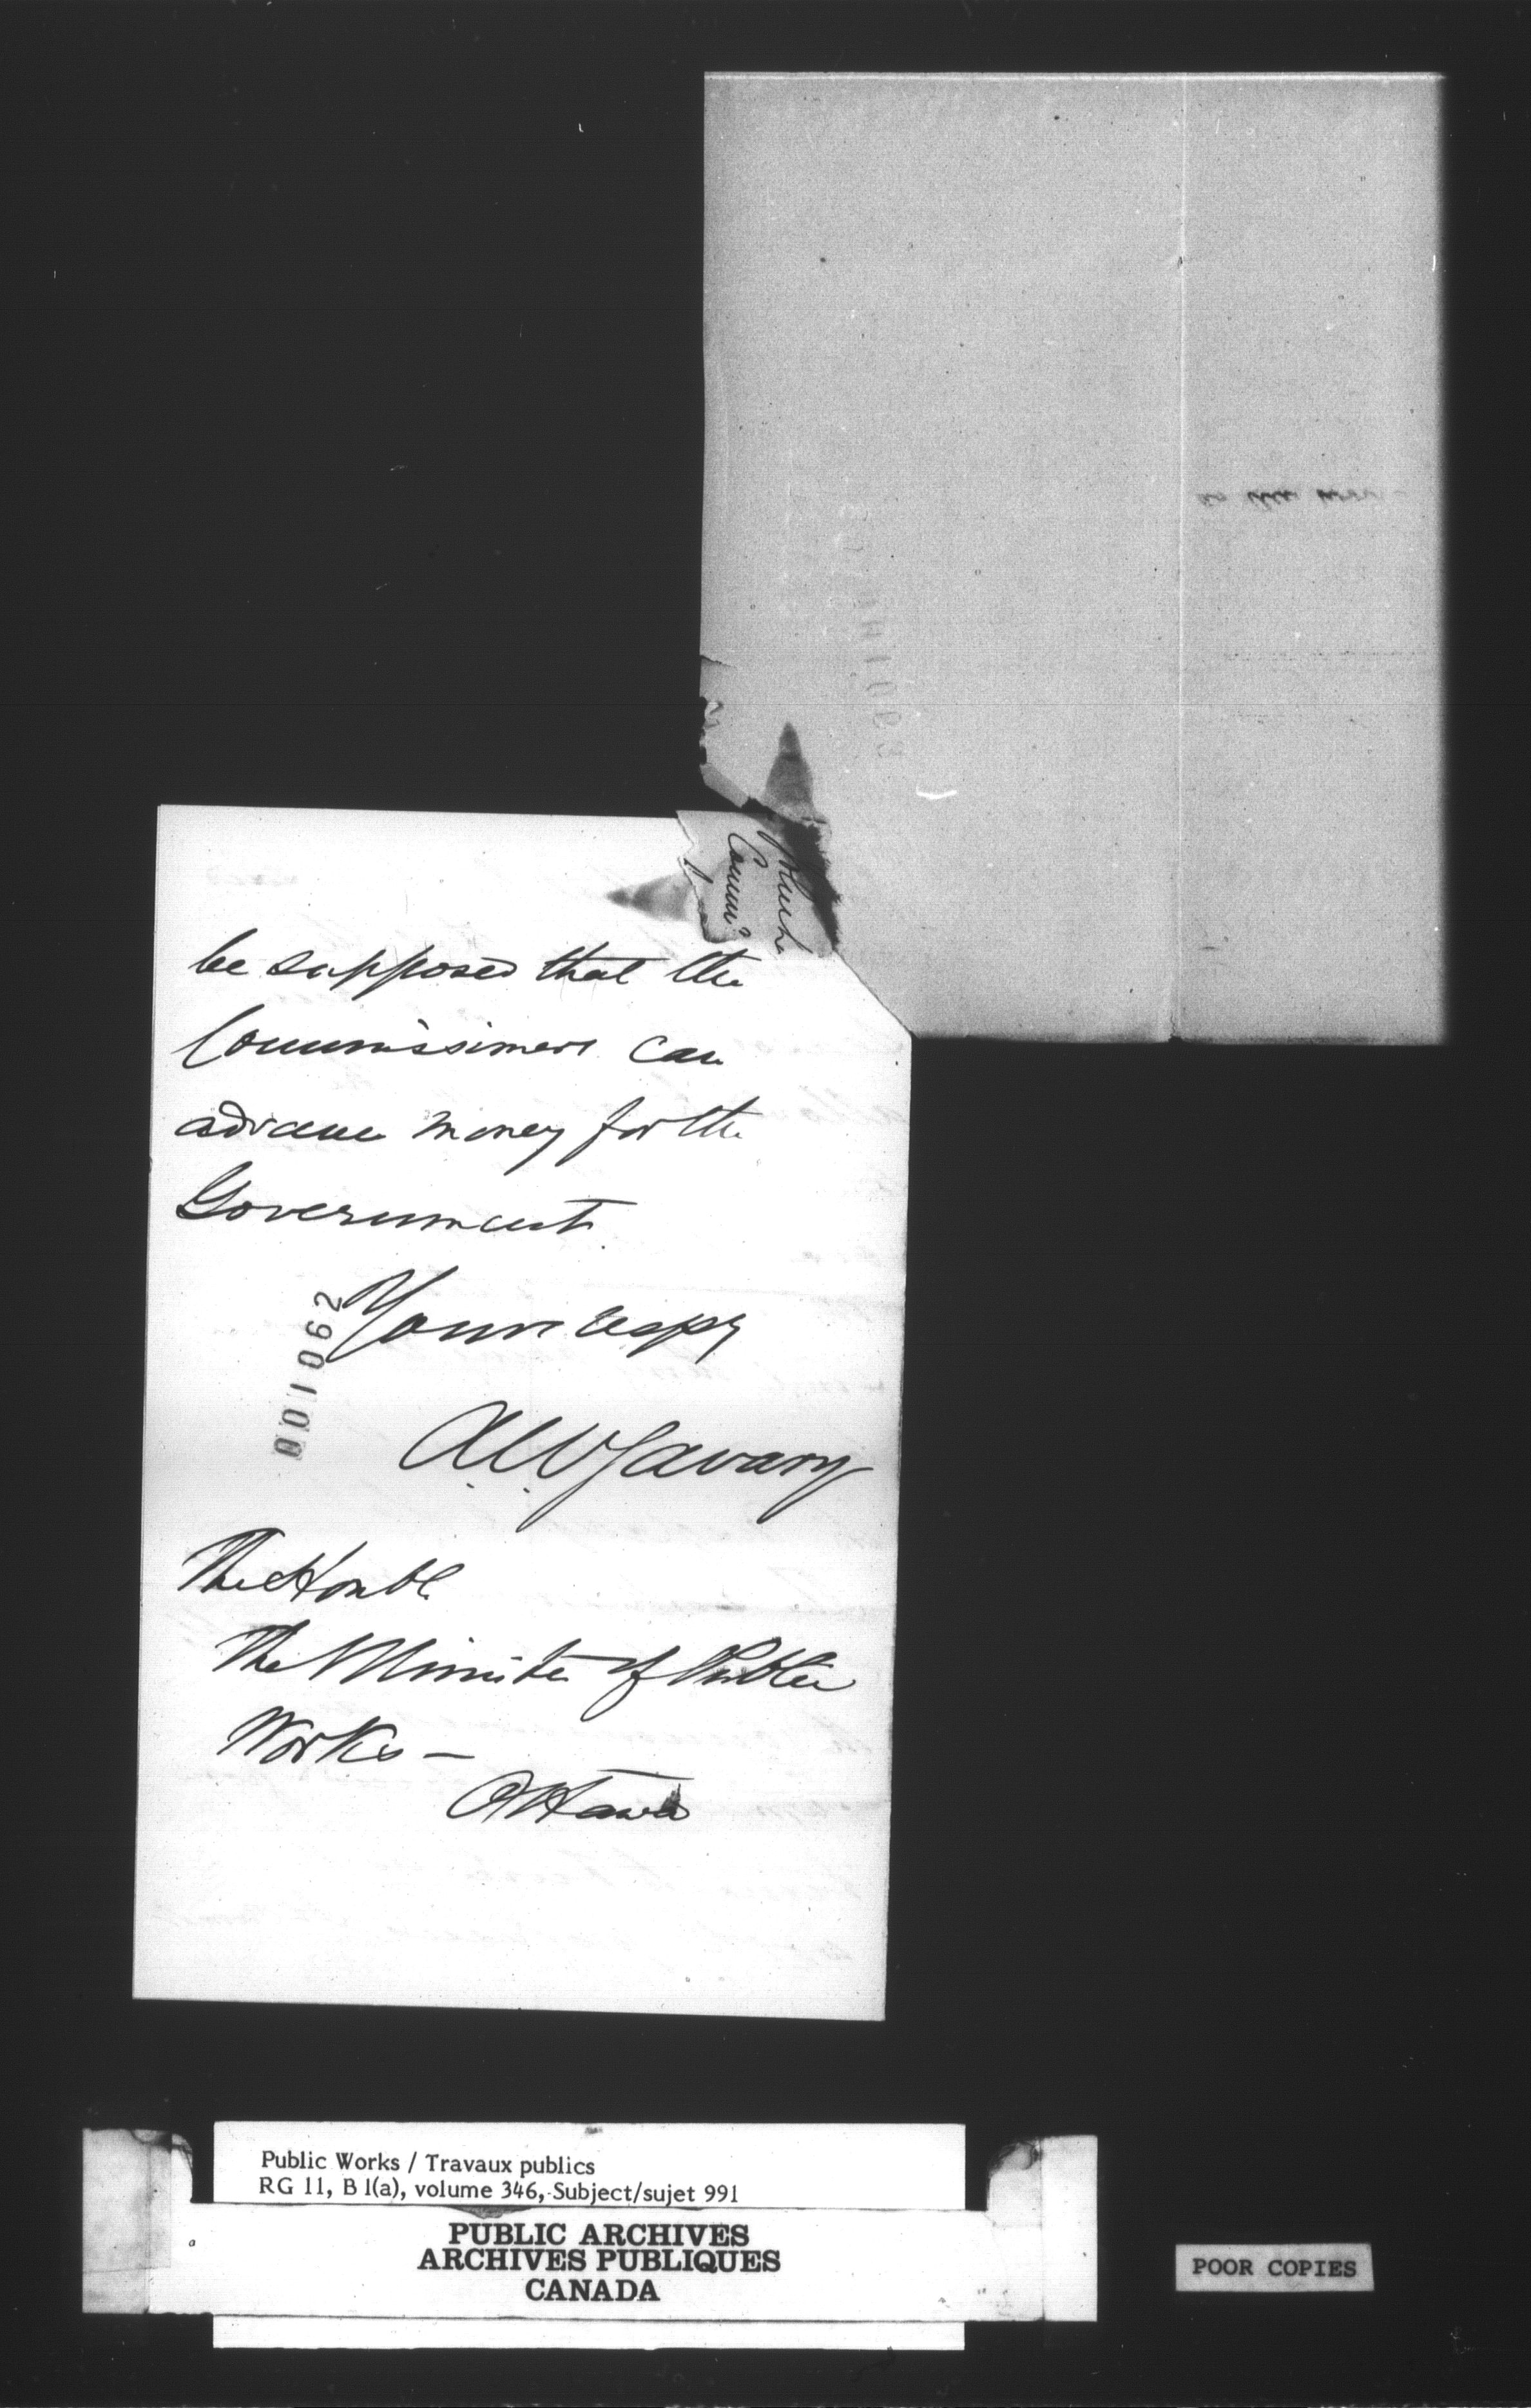 be supposed that the
Commissioners can
advance money for the
Government.
Yours respy
A. W. Savary
The Honble
The Minister of Public
Works —
Ottawa
001062
Public Works / Travaux publics
RG 11, B 1(a), volume 346, Subject/sujet 991
PUBLIC ARCHIVES
ARCHIVES PUBLIQUES
CANADA
POOR COPIES